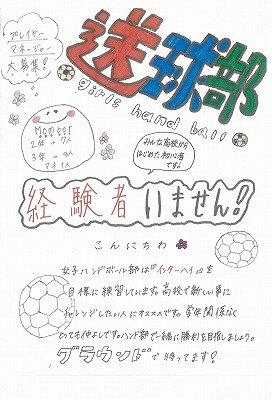 プレイヤー
マネージャー
大募集!
送球部
girls hand ball
Member
2年→7人
3年→人
マネ1人
みんな高校から
はじめた初心者
です。
経験者いません!
こんにちわ
女子ハンドボール部は『インターハイ』を
目標に練習しています。高校で新しい事に
チャレンジしたい人にオススメです。学年関係なく
とっても仲よしです。ハンド部で一緒に勝利を目指しましょう。
グラウンドで待ってます!